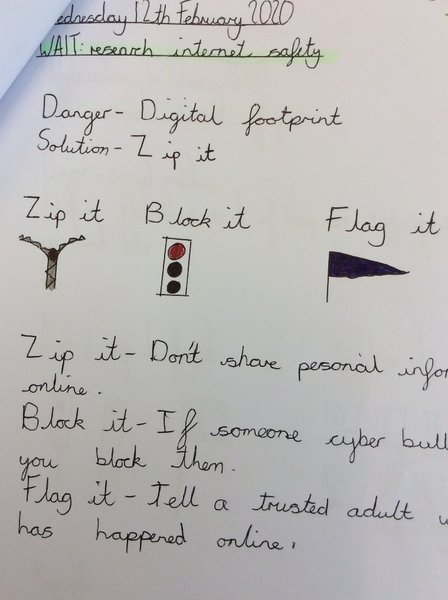 ednesday 12th February 2020
WALT: research internet safety
Danger- Digital footprint
Solution- Zip it
Zip it Block it Flag it
Zip it- Don't share pesonal infor
online.
Block it- If someone cyber bull
you block them.
Flag it- Tell a trusted adult w
has happened online.